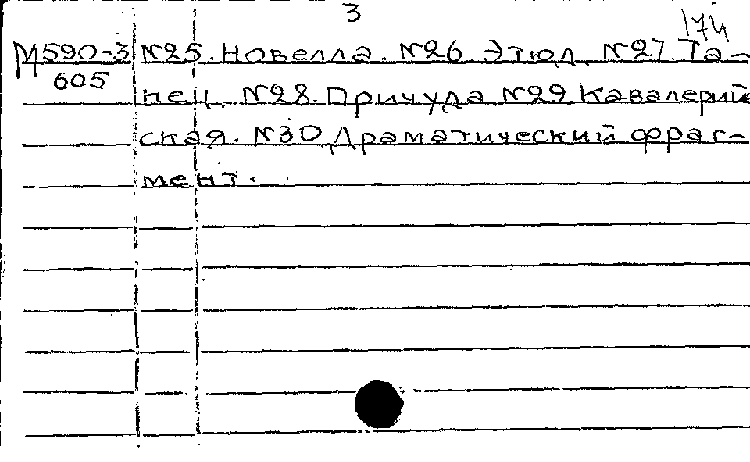 3
174
М590-3 №25. Новелла. №26. Этюд. №27 Та-
605
нец. №28. Причуда №29 Кавалерий
ская. №30 Драматический фраг-
мент.